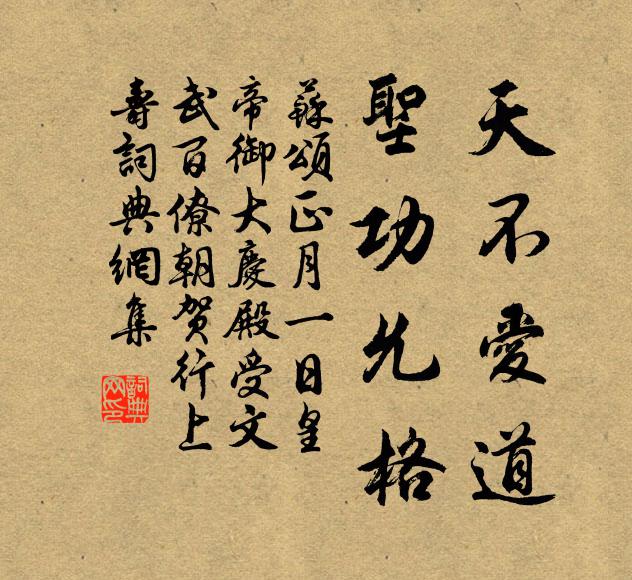 天不愛道
聖功允格
蘇頌正月一日皇
帝御大慶殿受文
武百僚朝賀行上
壽詞典網集
詞典网印